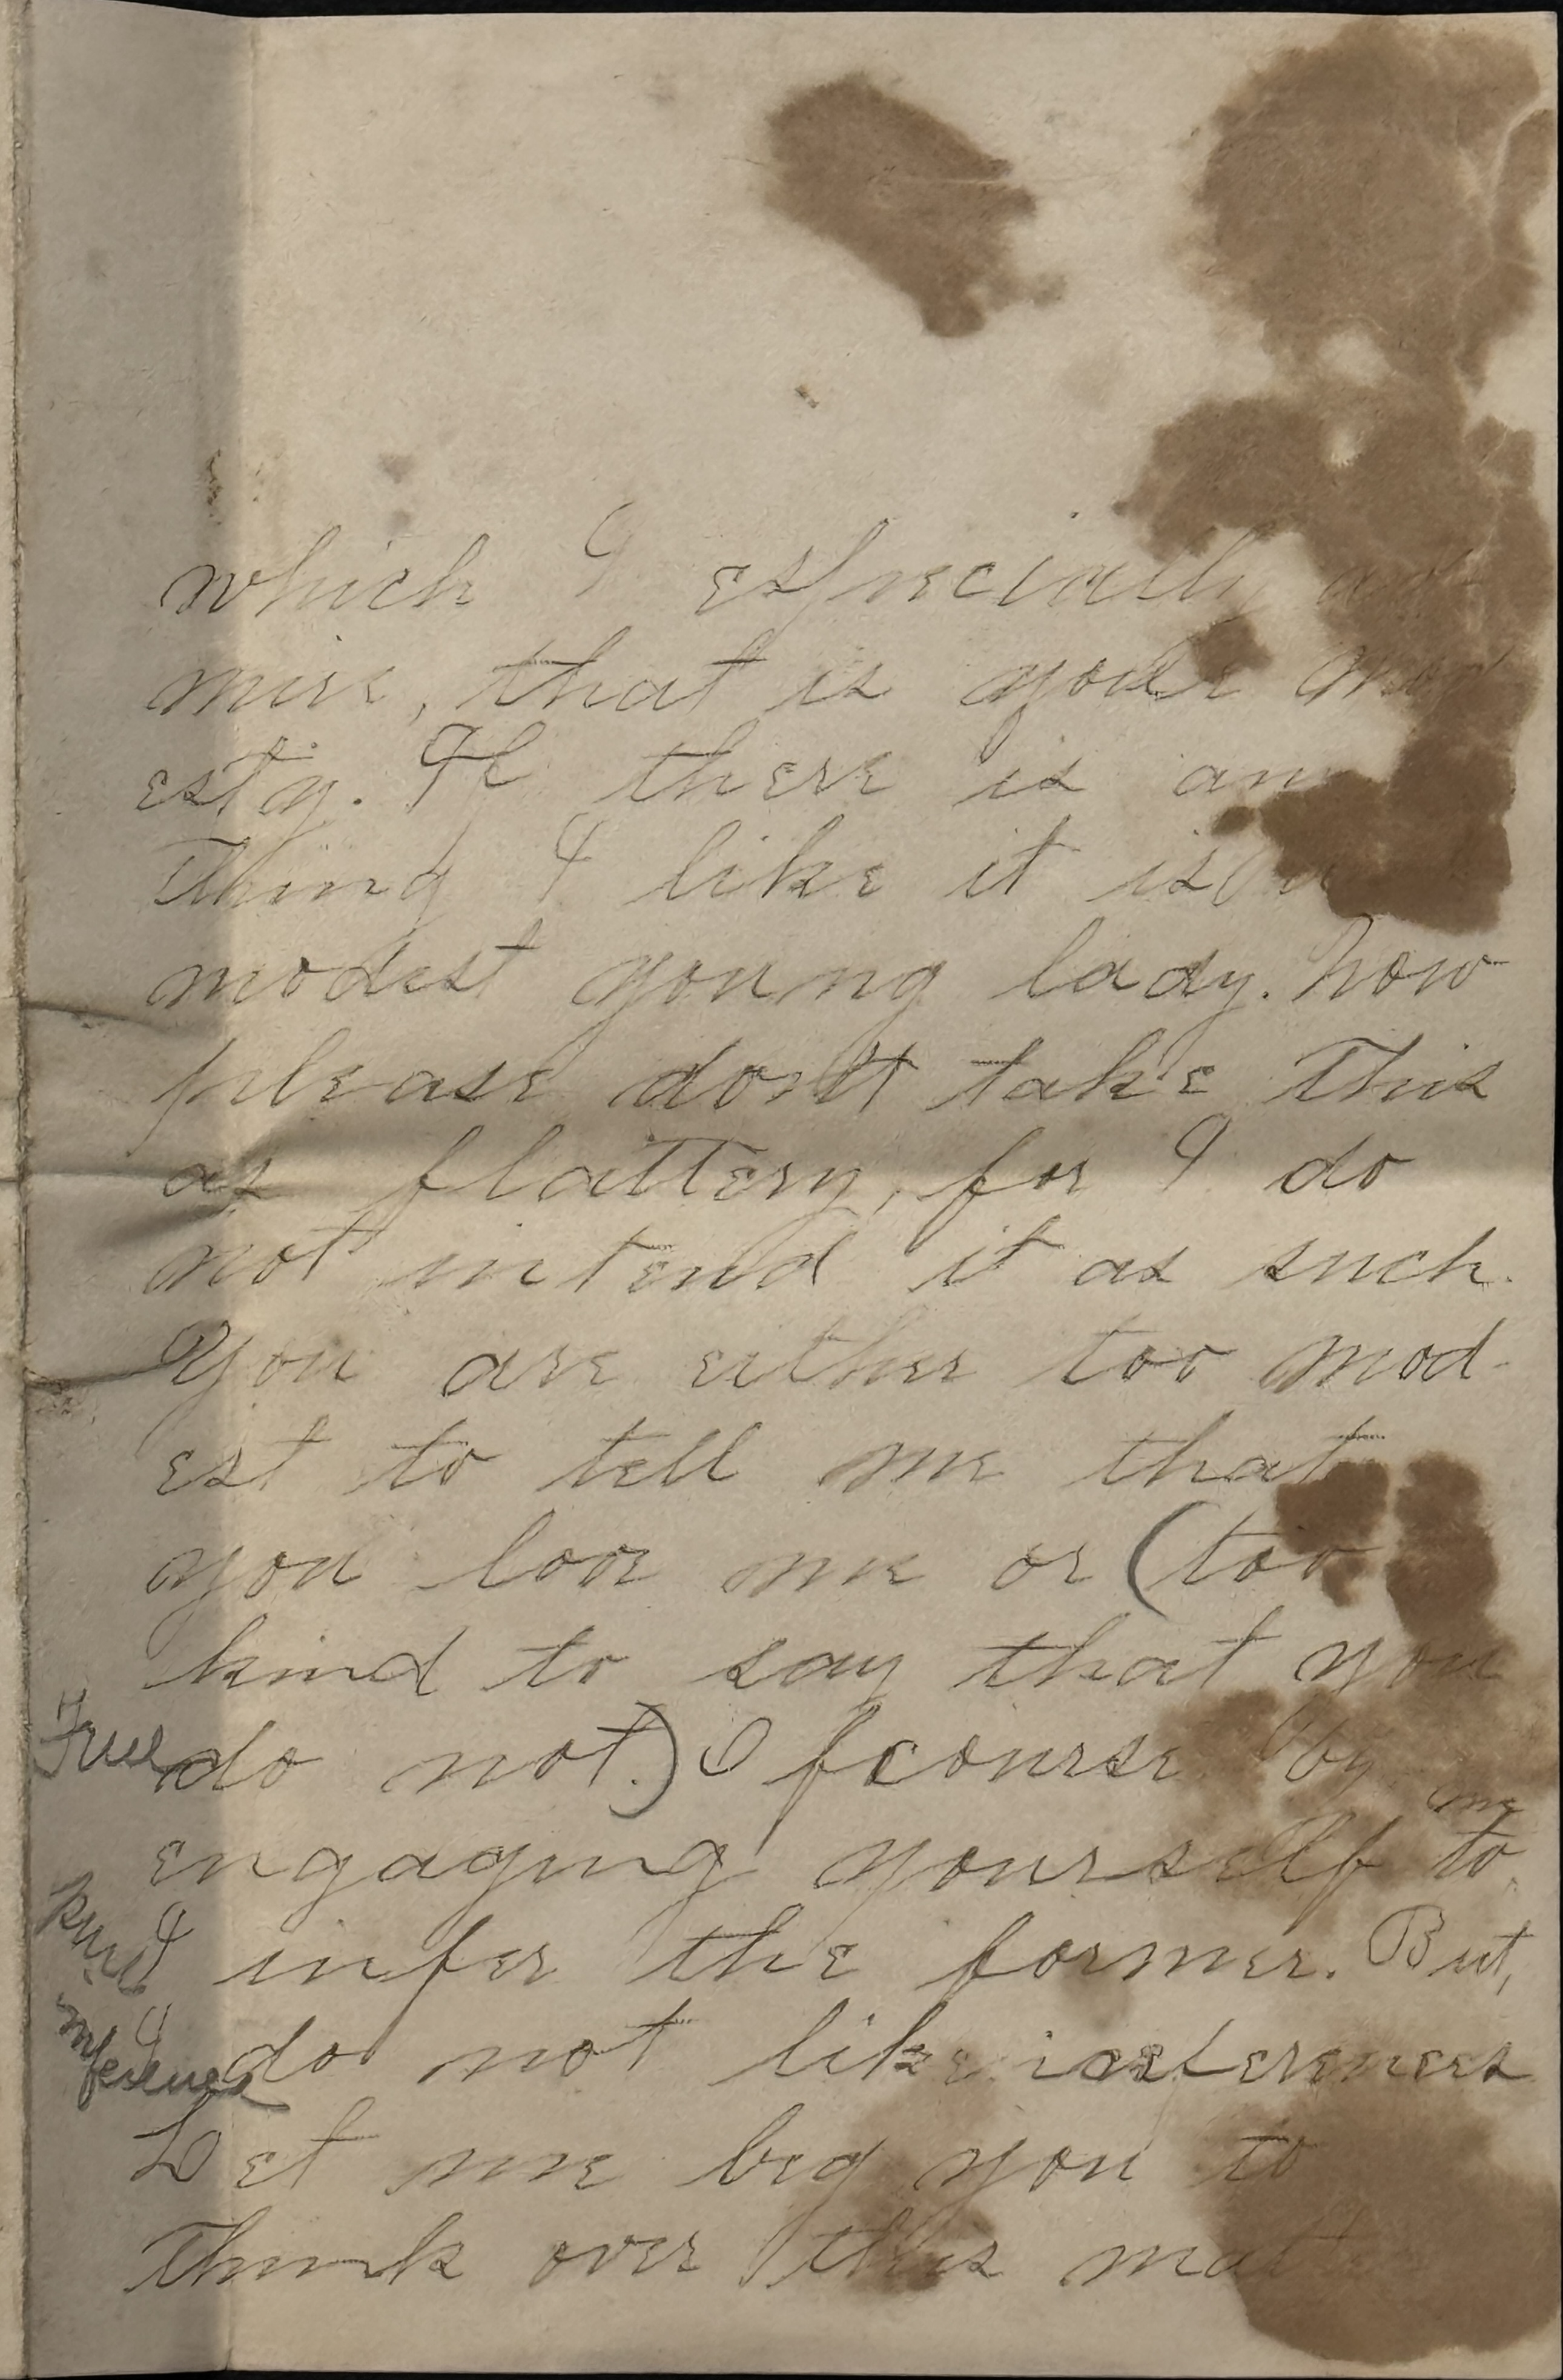 which I especially ad
mire, that is your mod
esty. If there is any
thing I like it is a
modest young lady. Now
please don't take this
as flattery, for I do
not intend it as such.
You are either too mod-
est to tell me that
you love me or (too
kind to say that you
True do not.) Of course by
me
engaging yourself to
kind I infer the former. But,
inference I do not like inferences
Let me beg you to
think over this mat